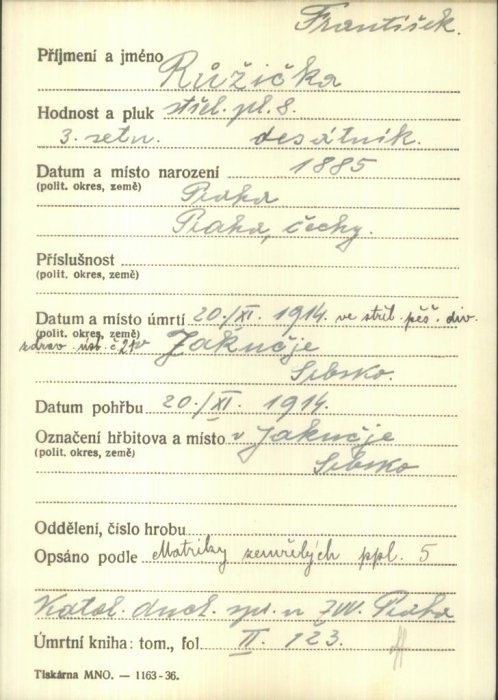 František.
Příjmení a jméno Růžička
Hodnost a pluk střel. pl. 8.
3. setn. desátník.
Datum a místo narození 1885
(polit. okres, země) Praha
Praha, Čechy.
Příslušnost
(polit. okres, země)
Datum a místo úmrtí 20./XI. 1914. ve stříl. pěš. div.
(polit. okres, země)
zdrav. úst. č. 21 v Jakučje
Srbsko.
Datum pohřbu 20./XI. 1914.
Označení hřbitova a místo v Jakučje
(polit. okres, země) Srbsko
Oddělení, číslo hrobu
Opsáno podle Matriky zemřelých ppl. 5
Katol. duch. spr. u ZVV. Praha
Úmrtní kniha: tom., fol. II. 123.
Tiskárna MNO. — 1163-36.